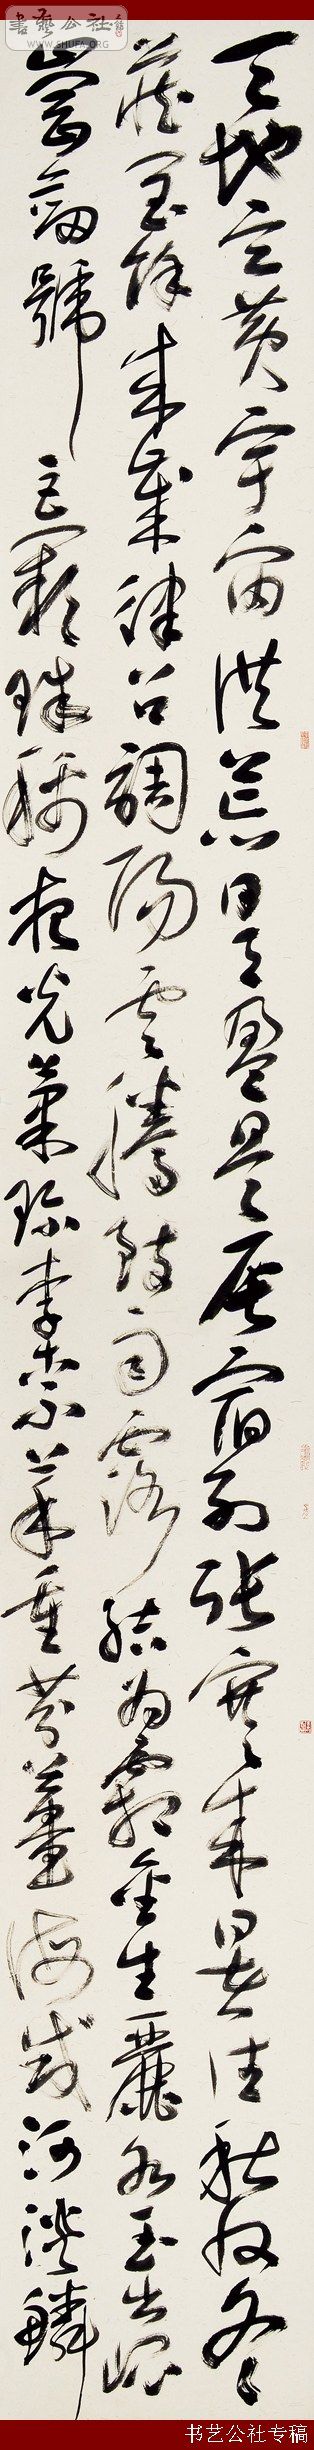 書藝公社
WWW.SHUFA.ORG
天地玄黄宇宙洪荒日月盈昃辰宿列張寒来暑往秋收冬
藏閏餘成歲律吕調陽雲騰致雨露結為霜金生麗水玉出崐
崗劍號巨闕珠稱夜光菓珍李柰菜重芥薑海咸河淡鱗
书艺公社专稿